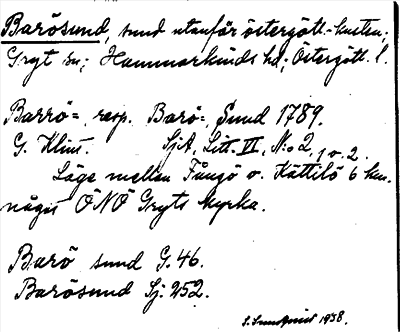 Barösund, sund utanför östergötl.-kusten;
Gryt sn; Hammarkinds hd; Östergötl. l.
Barrö=, resp. Barö=, Sund 1789.
G. Klint. SjA, Litt. VI, N:o 2, 1 o. 2.
Läge mellan Fångö o. Kättilö 6 km.
något ÖNÖ Gryts kyrka.
Barö sund G. 46.
Barösund Sj. 252.
S. Sundqvist 1938.